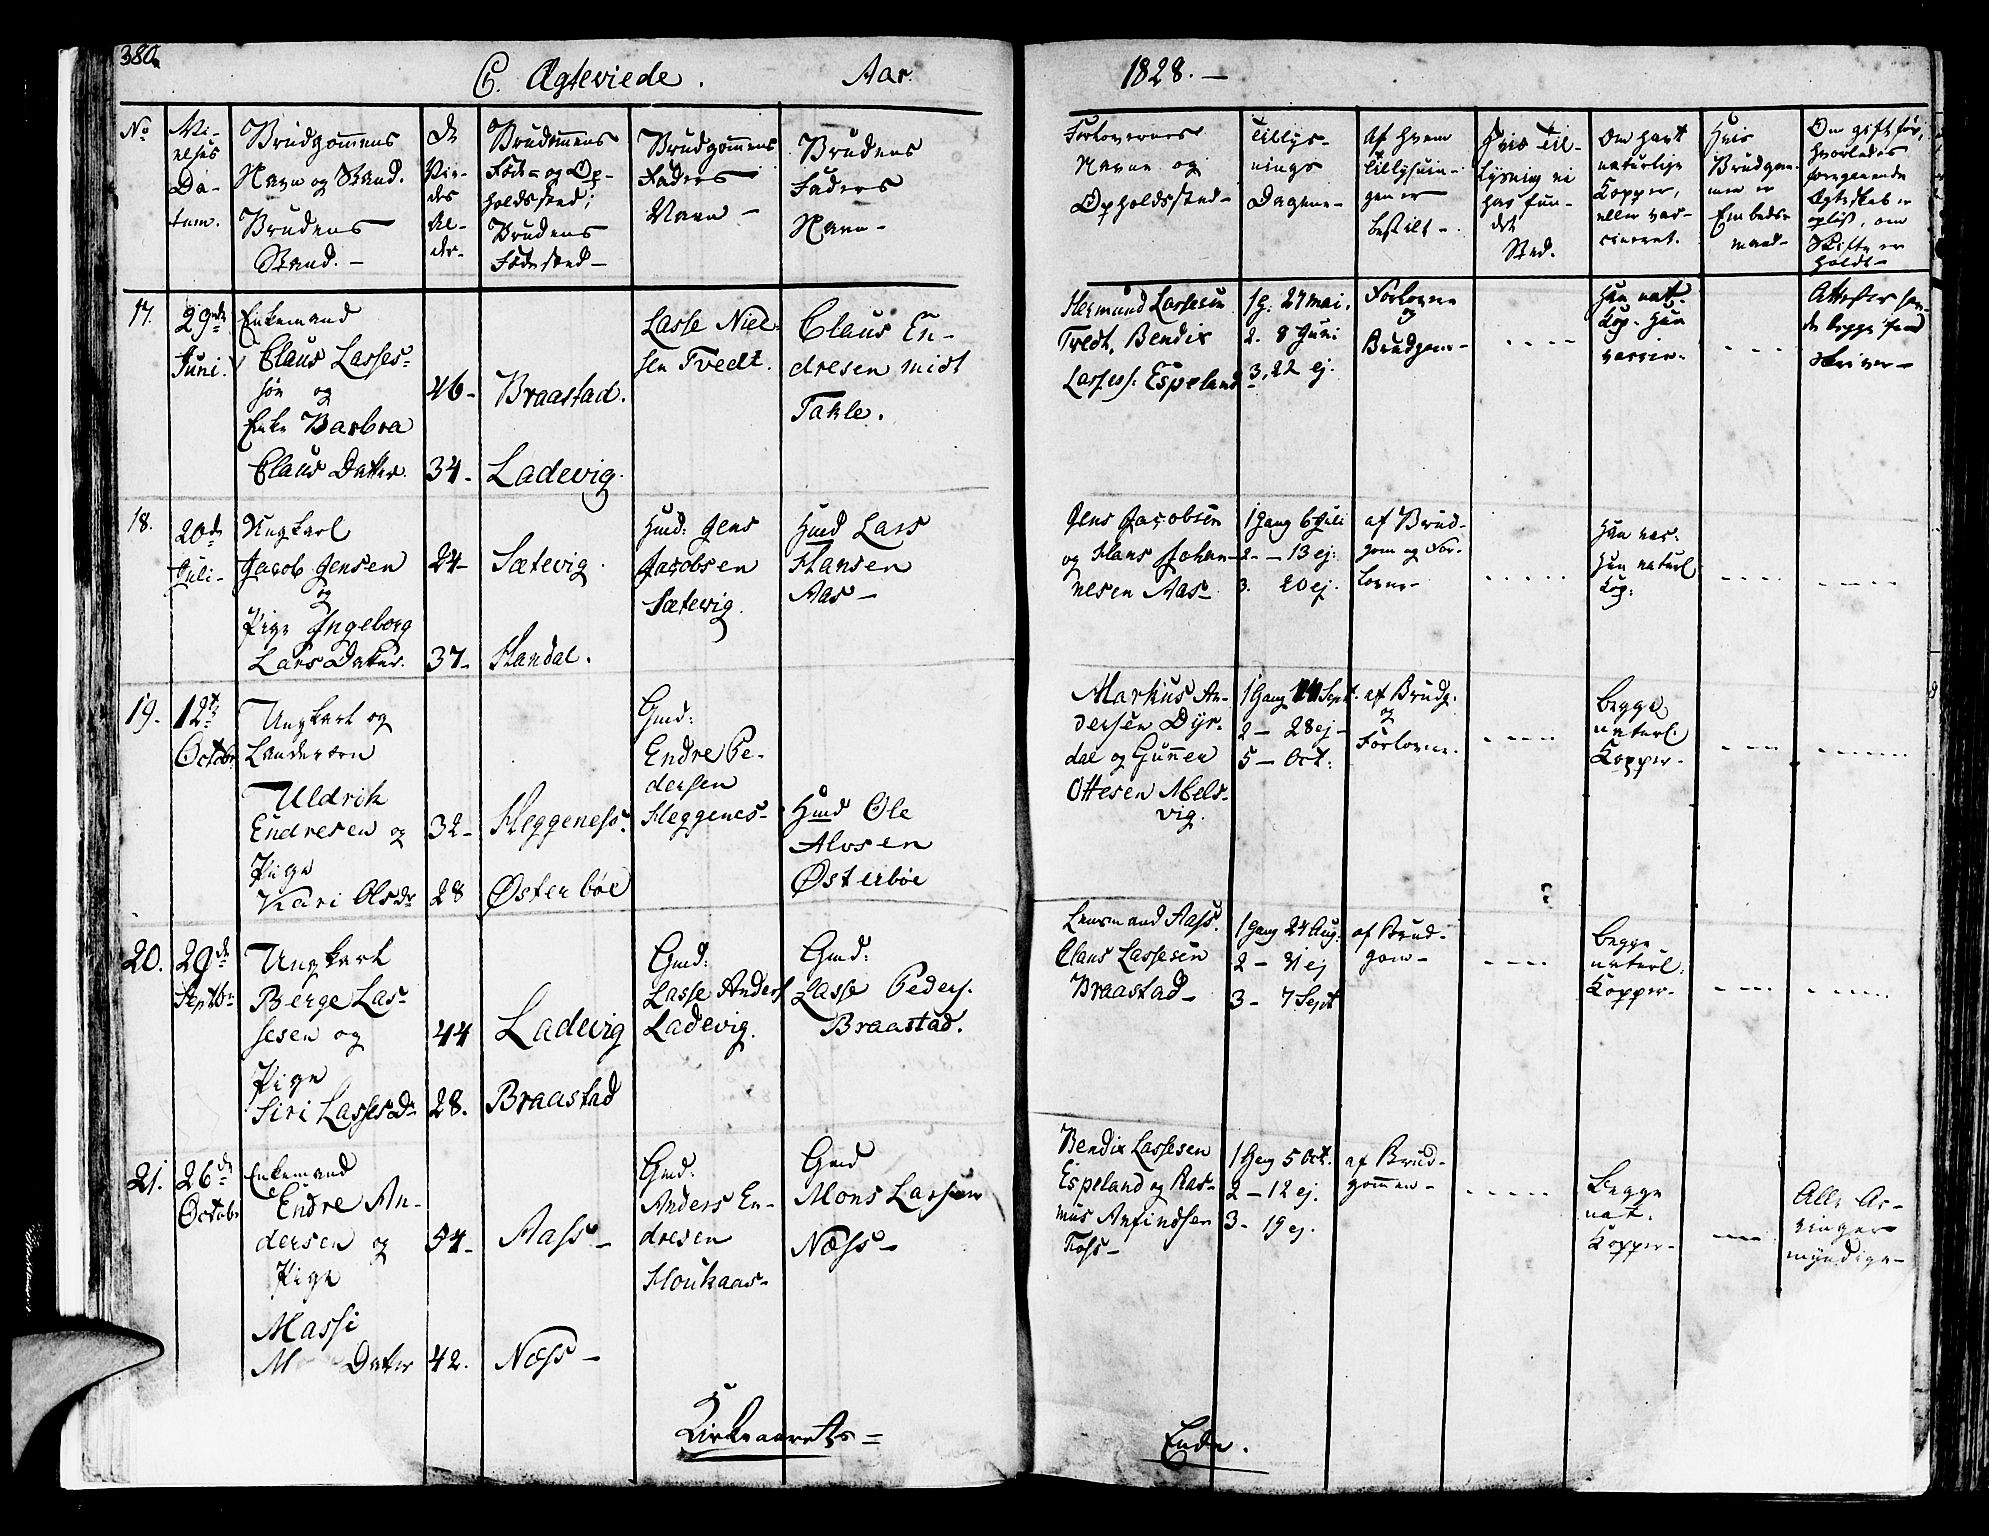 380.
C. Ægteviede. Aar
1828. —
No
Vi-
elses
Da-
tum.
Brudgommens
Navn og Stand.
Brudens
Stand. —
De
Vie-
des
Al-
der-
Brudommens
Føde- og Op-
holdssted;
Brudens
Fødested —
Brudgommens
Faders
Navn —
Brudens
Faders
Navn —
Forlovernes
Navne og
Opholdssted —
Tillys-
nings
Dagene —
Af hvem
Tillysnin-
gen er
bestilt —
Hvis Til-
lysning ei
har fun-
det
Sted.
Om havt
naturlige
Kopper,
eller vac-
cineret.
Hvis
Brudgom-
men er
Embeds-
mand —
Om gift før,
hvorledes
foregaaende
Ægteskab er
opløst, om
Skifte er
holdt —
17.
29de
Juni.
Enkemand
Claus Lasses-
søn og
Enke Barbra
Claus Datter.
46 —
34 —
Braastad.
Ladevig.
Lasse Niel-
sen Tvedt.
Claus En-
dresen midt
Takle.
Hermund Lassesen
Tvedt, Bendix
Lasses: Espeland
1 g. 27 mai.
2. 8 Juni
3, 22 ej.
Forlovere
og
Brudgom —
Han nat.
Kop. Hun
vaccin.
Attester
begge fra
skriver —
18.
20de
Juli —
Ungkarl
Jacob Jensen
og
Pige Ingeborg
Lars Datter.
24 —
37 —
Sætevig.
Handal.
Huusd: Jens
Jacobsen
Sætevig.
Huusd Lars
Hansen
Aas —
Jens Jacobsen
og Hans Johan-
nesen Aas —
1 Gang 6 Juli
2 — 13 ej.
3. 20 ej.
af Brud-
gom og For-
lovere —
Han vac:
Hun naturl
Kop:
19.
12te
Octobr
Ungkarl og
Landværn
Uldrik
Endresen og
Pige
Kari Olsdr
32 —
28
Heggeness.
Østerböe
Gmd:
Endre Pe-
dersen
Heggenes —
Huusd Ole
Alvsen
Østerböe
Markus An-
dersen Dyr-
dal og Gunner
Ottesen Mels-
vig.
1 Gang 14 Sept.
2 — 28 ej —
5 — Oct:
af Brudg.
og
Forlovere.
Begge
naturl.
Kopper —
20.
29de
Septbr
Ungkarl
Berge Las-
sesen og
Pige
Siri Lassesdr
44
28.
Ladevig
Braastad
Gmd:
Lasse Anders
Ladevig.
Gmd:
Lasse Peders.
Braastad.
Lensmand Aass.
Claus Lassesen
Braastad —
1 Gang 24 Aug.
2 — 31 ej
3 — 7 Sept
af Brud-
gom —
Begge
naturl:
Kopper —
21.
26de
Octobr
Enkemand
Endre An-
dersen og
Pige
Massi
M Datter
54 —
42.
Aass —
Næss —
Gmd:
Anders En-
dresen
Houkaas —
Gmd
Mons Larsen
Næss —
Bendix Lassesen
Espeland og Ras-
mus Anfindsen
Foss —
1 Gang 5 Oct.
2 — 12 ej.
3 — 19 ej.
af Brud-
gommen —
Begge
nat.
Kopper —
Alle Ar-
vinger
myndige —
Kirkeaarets =
Ende.